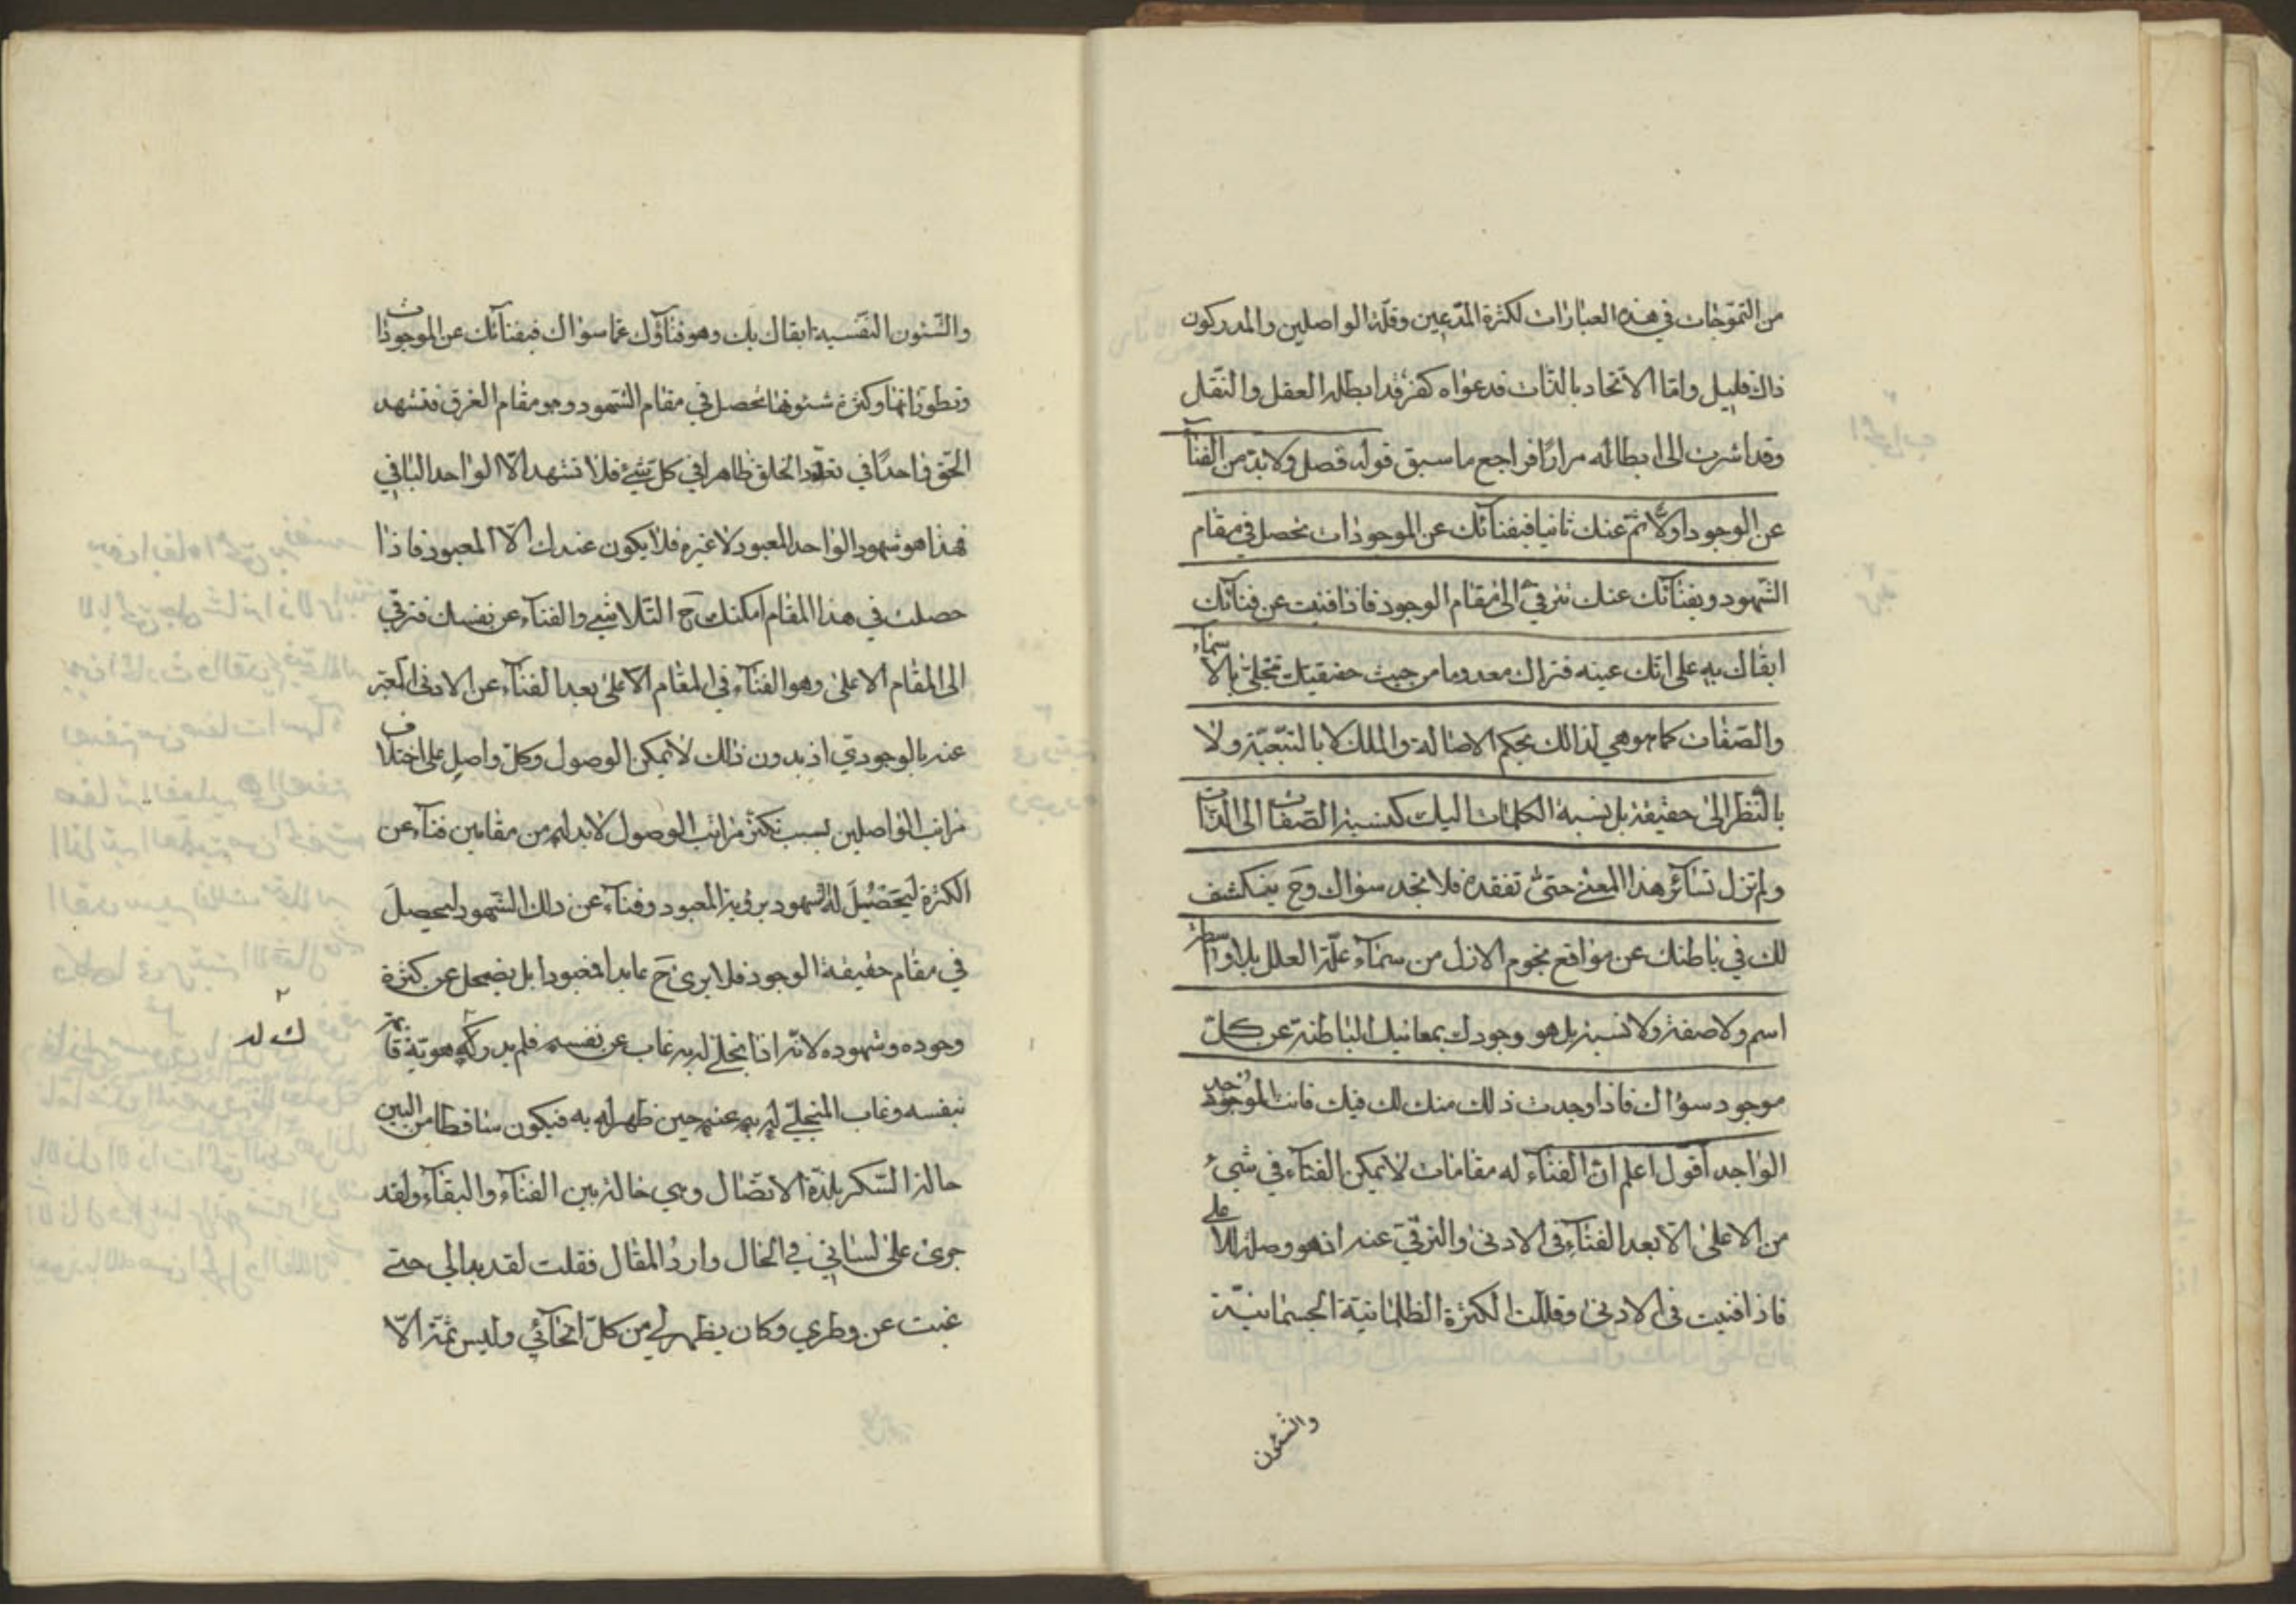 من التموّجات في هذه العبارات لكثرة المدّعين وقلّة الواصلين والمدركون
ذاك قليل وامّا الاتّحاد بالذّات فدعواه كفر قد ابطله العقل والنّقل
وقد اشرت الى ابطاله مرارًا فراجع ما سبق قوله فصل ولا بدّ من الفنآء
عن الوجود اولًا ثمّ عنك ثانيا فبفنآئك عن الموجودات تحصل في مقام
الشّهود وبفنآئك عنك تترقّى الى مقام الوجود فاذا فنيت عن فنآئك
ابقاك به على انّك عينه فتراك معدوما من حيث حقيقتك تتجلّى بالاسمآء
والصّفات كما هو هي لذالك بحكم الاصالة والملك لا بالتّبعيّة ولا
بالنّظر الى حقيقة بل نسبة الكلمات اليك كنسبة الصّفات الى الذّات
ولم تزل تسآئر هذا المعنى حتّى تفقده فلا تجد سواك وح ينكشف
لك في باطنك عن مواقع نجوم الازل من سمآء علّة العلل بلا واسطة
اسم ولا صفة ولا نسبة بل هو وجودك بمعانيك الباطنة عن كلّ
موجود سواك فاذا وجدت ذلك منك لك فيك فانت الموجود
الواجد اقول اعلم انّ الفنآء له مقامات لا يمكن الفنآء في شيء
من الاعلى الّا بعد الفنآء في الادنى والترقّي عنه اذ هو وصلة للاعلى
فاذا فنيت في الادنى وقللت الكثرة الظلمانيّة الجسمانيّة
والشئون
والشّئون النفسية ابقاك بك وهو فنآؤك عمّا سواك فبفنآئك عن الموجودات
وتطوّراتها وكثرة شئونها تحصل في مقام الشّهود وهو مقام الغرق فتشهد
الحقّ واحدًا في تعدّد الخلق ظاهرا في كلّ شيء فلا تشهد الّا الواحد الباقي
فهذا هو شهود الواحد المعبود لا غيره فلا يكون عندك الّا المعبود فاذا
حصلت في هذا المقام امكنك ح التّلاشي والفنآء عن نفسك فترقّي
الى المقام الاعلى وهو الفنآء في المقام الاعلى بعد الفنآء عن الادنى المعبّر
عنه بالوجودي اذ بدون ذالك لا يمكن الوصول وكلّ واصل على اختلاف
مراتب الواصلين بسبب تكثر مراتب الوصول لا بد له من مقامين فنآء عن
الكثرة ليحصل له شهود برؤية المعبود وفنآء عن ذلك الشّهود ليحصل
في مقام حقيقة الوجود فلا يرى ح عابدا ومعبودا بل يضمحل عن كثرة
وجوده وشهوده لانّه اذا تجلّى له به غاب عن نفسه فلم يدركه هويّة قائمة
ك له
بنفسه وغاب المتجلّي له به عنه حين ظهر له به فيكون ساقطا من البين
حالة السّكر بلذّة الاتّصال وهي حالة بين الفنآء والبقآء ولقد
جرى على لساني في الحال وارد المقال فقلت لقد بدا لي حتى
غبت عن وطري وكان يظهر لي من كلّ انحآئي وليس ثمّة الّا